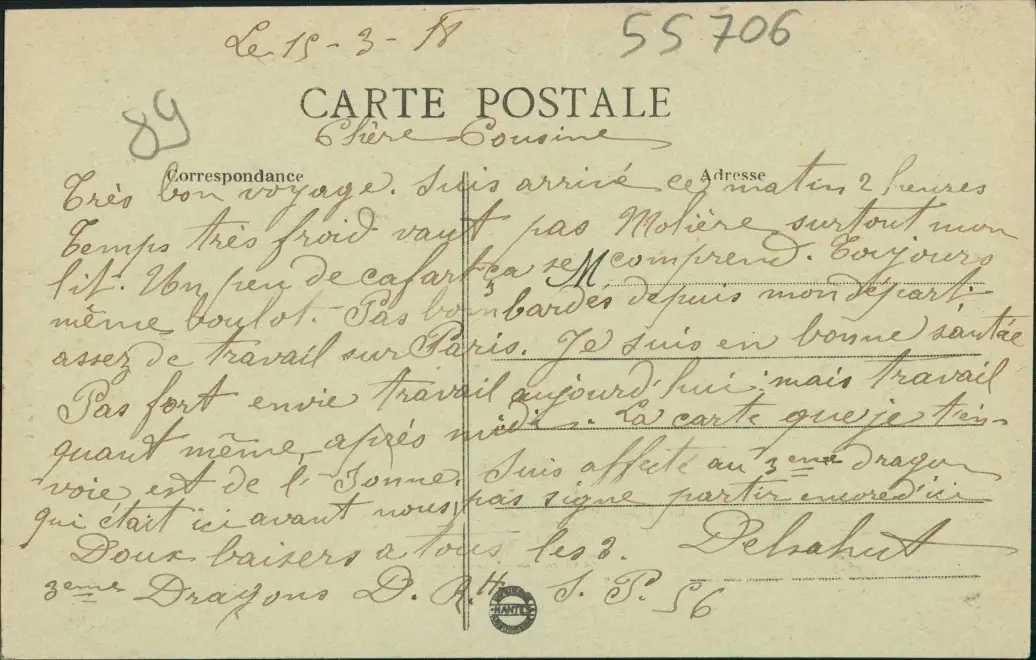 Le 15-3-18
55706
89
CARTE POSTALE
Chère Cousine
Correspondance
Adresse
Très bon voyage. Suis arrivé ce matin 2 heures
Temps très froid vaut pas Molière surtout mon
lit. Un peu de cafart ça se comprend. Toujours
M
même boulot. Pas bombardés depuis mon départ.
assez de travail sur Paris. Je suis en bonne santée
Pas fort envie travail aujourd'hui mais travail
quant même après midi. La carte que je t'en-
voie est de l'Ionne. Suis affecté au 3eme dragon
qui était ici avant nous, pas signe partir encore d'ici
Doux baisers a tous les 3. Delsahut
3eme Dragons D. R. H. S. P. 56
NANTES